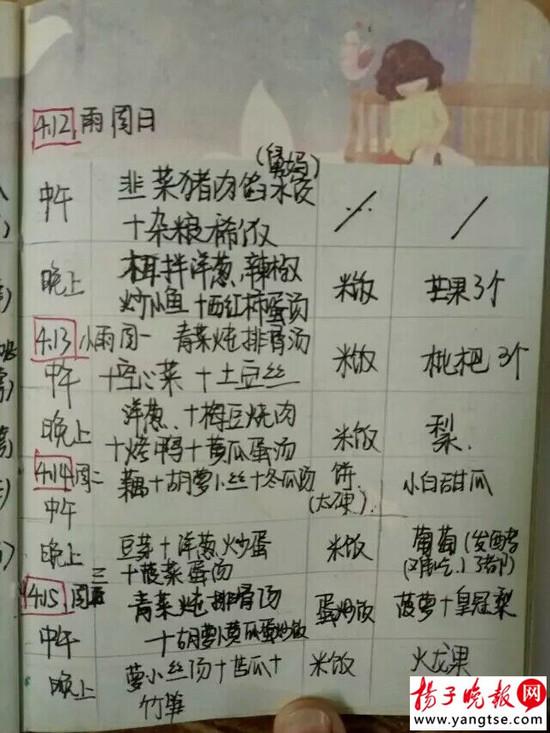 4.12,雨 周日
(舅妈)
中午 韭菜猪肉馅水饭
十杂粮稀饭
晚上 木耳拌洋葱,辣椒 米饭 芒果3个
炒小鱼十西红柿蛋汤
4.13 小雨 周一 青菜炖排骨汤 米饭 枇杷3个
中午 十空心菜十土豆丝
晚上 洋葱、十梅豆烧肉 米饭 梨.
十烤鸭十黄瓜蛋汤
4.14 周二 藕十胡萝卜丝十冬瓜汤 饼. 小白甜瓜
中午 (太硬)
晚上 豆芽十洋葱炒蛋 米饭 葡萄(发酵
十菠菜蛋汤 (难吃,)
4.15,周三 青菜炖排骨汤 蛋炒饭 菠萝十皇冠梨
中午 十胡萝卜黄瓜蛋炒饭
晚上 萝卜丝汤十苦瓜十 米饭 火龙果
竹笋
扬子晚报网
www.yangtse.com